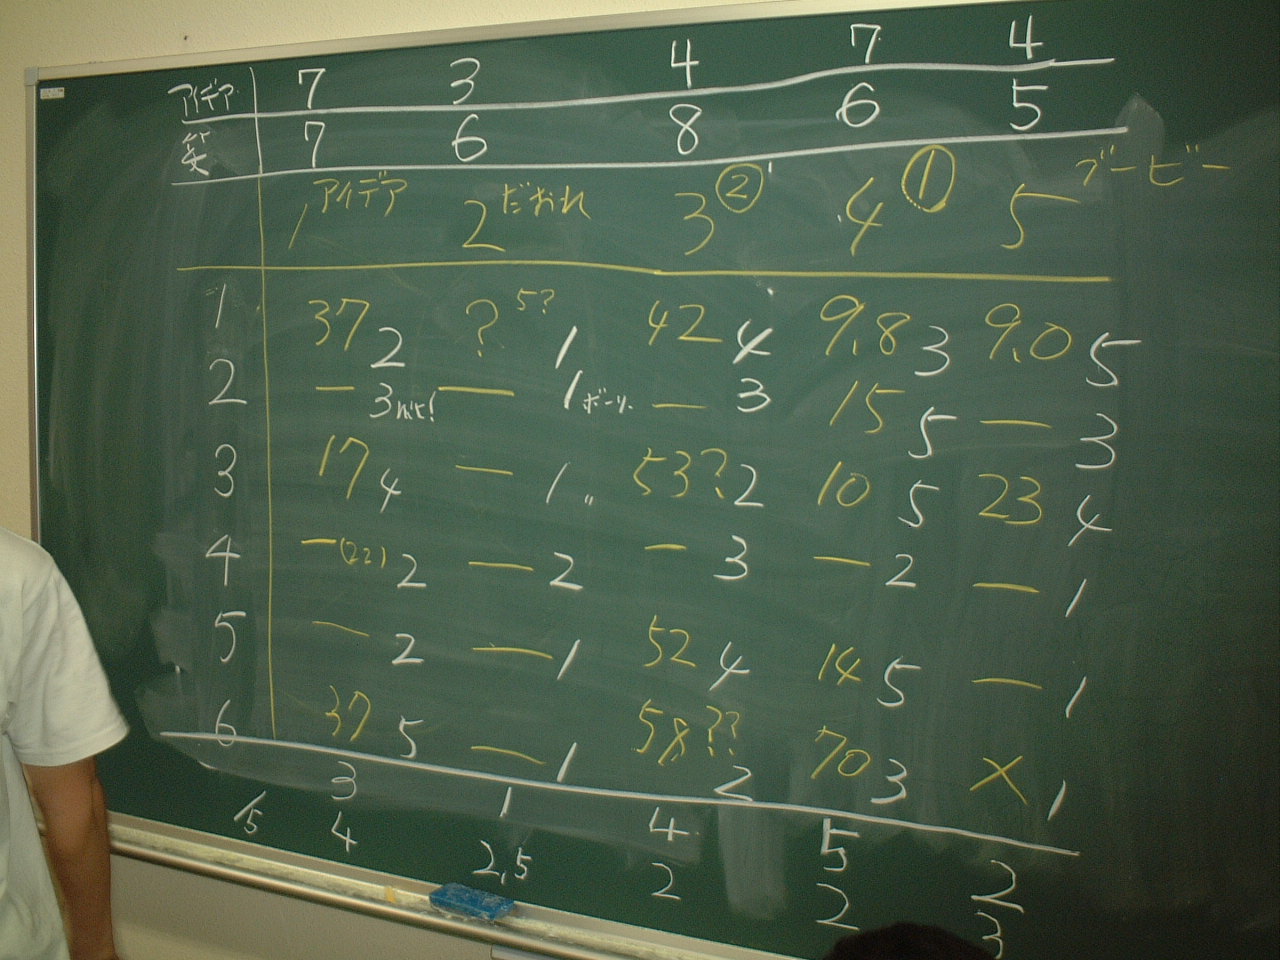 アイデア 7 3 4 7 4
笑 7 6 8 6 5
1 アイデア 2 だおれ 3 ② 4 ① 5 ブービー
1 37 2 ? 5? 1 42 4 9.8 3 9.0 5
2 — 3 — 1 ボーリ — 3 15 5 — 3
3 17 4 — 1 〃 53? 2 10 5 23 4
4 — (22) 2 — 2 — 3 — 2 — 1
5 — 2 — 1 52 4 14 5 — 1
6 37 5 — 1 58?? 2 70 3 × 1
3 1 4 5 2
/5 4 2,5 2 2 3